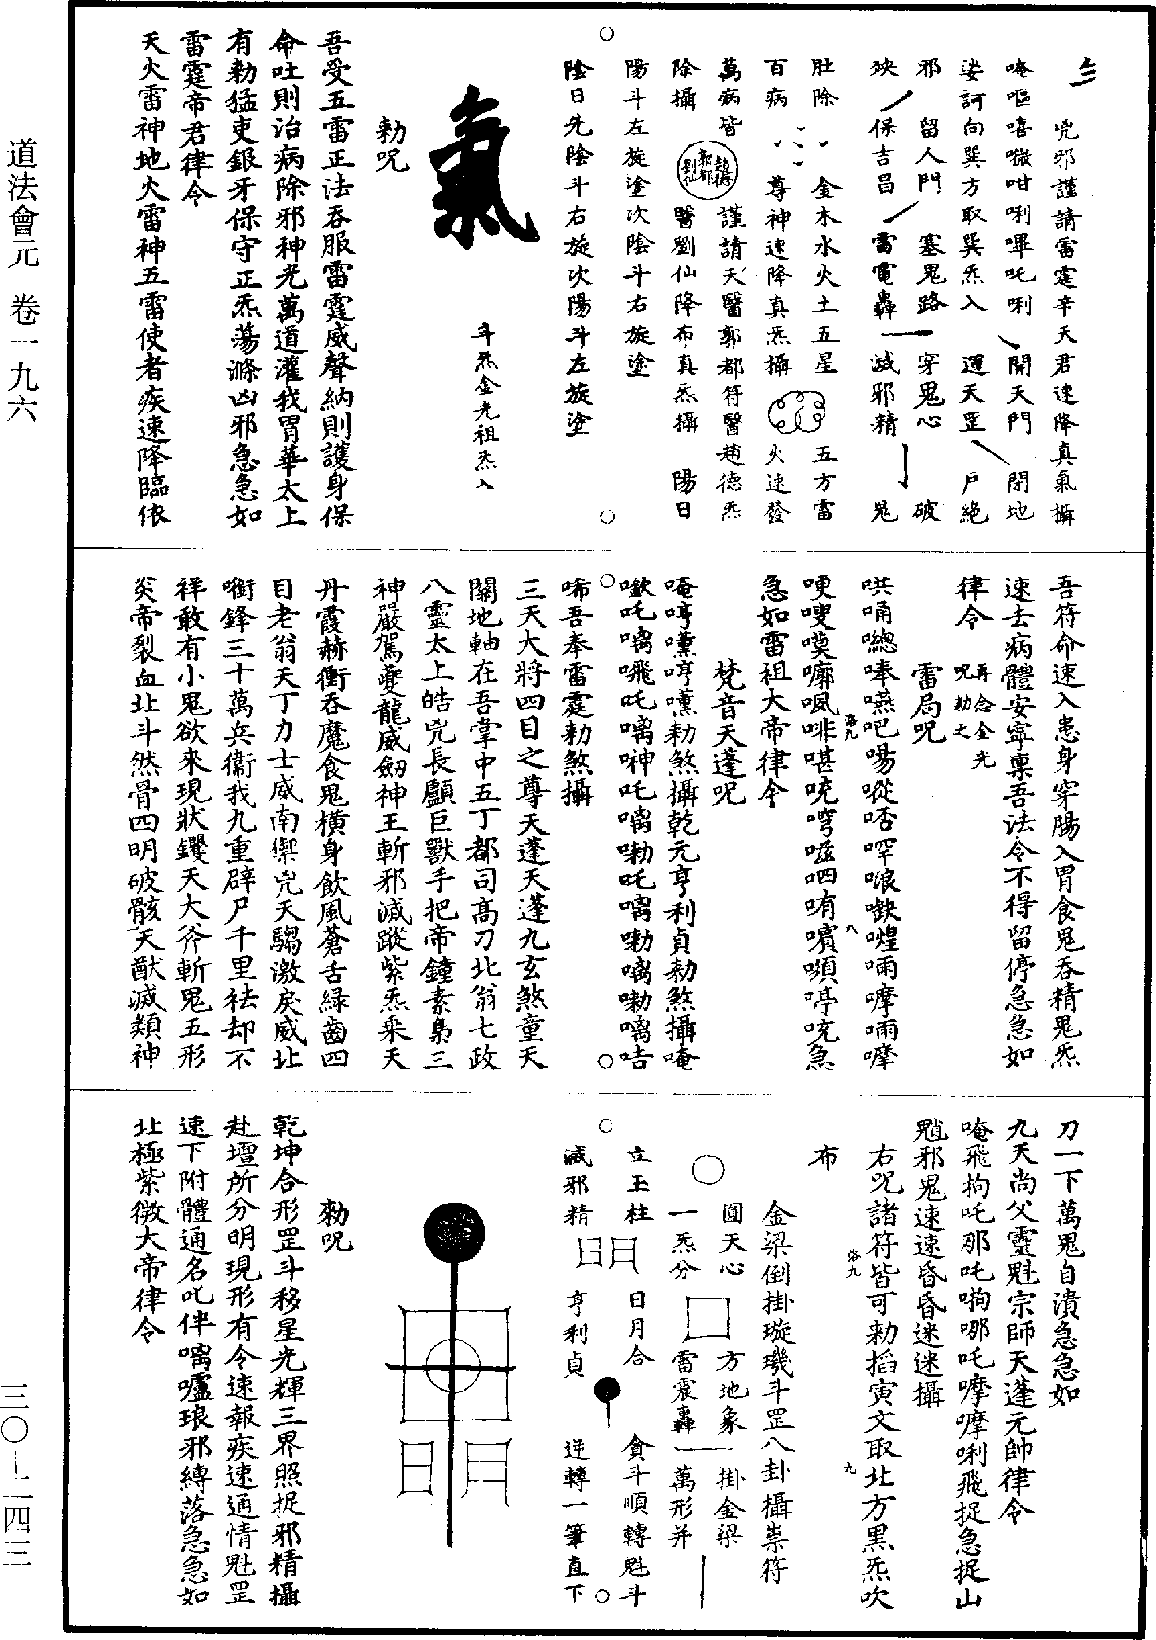 兇邪謹請雷霆辛天君速降真氣攝
唵嘔嘻㘈咁唎嗶吒唎　開天門　閉地
娑訶向巽方取巽炁入　運天罡　戶絕
邪　留人門　塞鬼路　穿鬼心　破
殃　保吉昌　雷電轟　滅邪精　鬼
肚除　金木水火土五星　五方雷
百病　尊神速降真炁攝　火速發
萬病皆　趙德　郭都　劉仙　謹請天醫郭都符醫趙德炁
除攝　醫劉仙降布真炁攝　陽日
陽斗左旋塗次陰斗右旋塗
陰日先陰斗右旋次陽斗左旋塗
氣　斗炁金光祖炁入
勑咒
吾受五雷正法吞服雷霆威聲納則護身保
命吐則治病除邪神光萬道灌我胃華太上
有勑猛吏銀牙保守正炁蕩滌凶邪急急如
雷霆帝君律令
天火雷神地火雷神五雷使者疾速降臨依
吾符命速入患身穿腸入胃食鬼吞精鬼炁
速去病體安寧稟吾法令不得留停急急如
律令　再念金光咒勑之
雷局咒
哄㖅嗯㖓嚥吧喝嘥唔啰哴㗖㗲唡嚤唡嚤
哽嗖嘆嘟㖹啡㗁唍㗫嗞呬哊嚬㘋㖕唍急
急如雷祖大帝律令
梵音天蓬咒
唵哼㘛哼㘛勑煞攝乾元亨利貞勑煞攝唵
㗖吒㗭飛吒㗭呻吒㗭嘞吒㗭嘞㗭嘞㗭咭
唏吾奉雷霆勑煞攝
三天大將四目之尊天蓬天蓬九玄煞童天
關地軸在吾掌中五丁都司高刁北翁七政
八靈太上皓兇長顱巨獸手把帝鐘素梟三
神嚴駕夔龍威劒神王斬邪滅蹤紫炁乘天
丹霞赫衝吞魔食鬼橫身飲風蒼舌綠齒四
目老翁天丁力士威南禦兇天騶激戾威北
啣鋒三十萬兵衞我九重辟尸千里祛却不
祥敢有小鬼欲來現狀钁天大斧斬鬼五形
炎帝裂血北斗然骨四明破骸天猷滅類神
刀一下萬鬼自潰急急如
九天尚父靈魁宗師天蓬元帥律令
唵飛拘吒那吒㗅哪吒嚤嚤唎飛捉急捉山
魈邪鬼速速昏昏迷迷攝
右咒諸符皆可勑搯寅文取北方黑炁吹
布
金梁倒掛璇璣斗罡八卦攝祟符
圓天心　方地象　掛金梁
一炁分　雷震轟　萬形并
立玉柱　日月合　貪斗順轉魁斗
滅邪精　日月　亨利貞　逆轉一筆直下
日月
勑咒
乾坤合形罡斗移星光輝三界照捉邪精攝
赴壇所分明現形有令速報疾速通情魁罡
速下附體通名吒伴㗭嚧琅邪縛落急急如
北極紫微大帝律令
道法會元　卷一九六
三〇—二四三